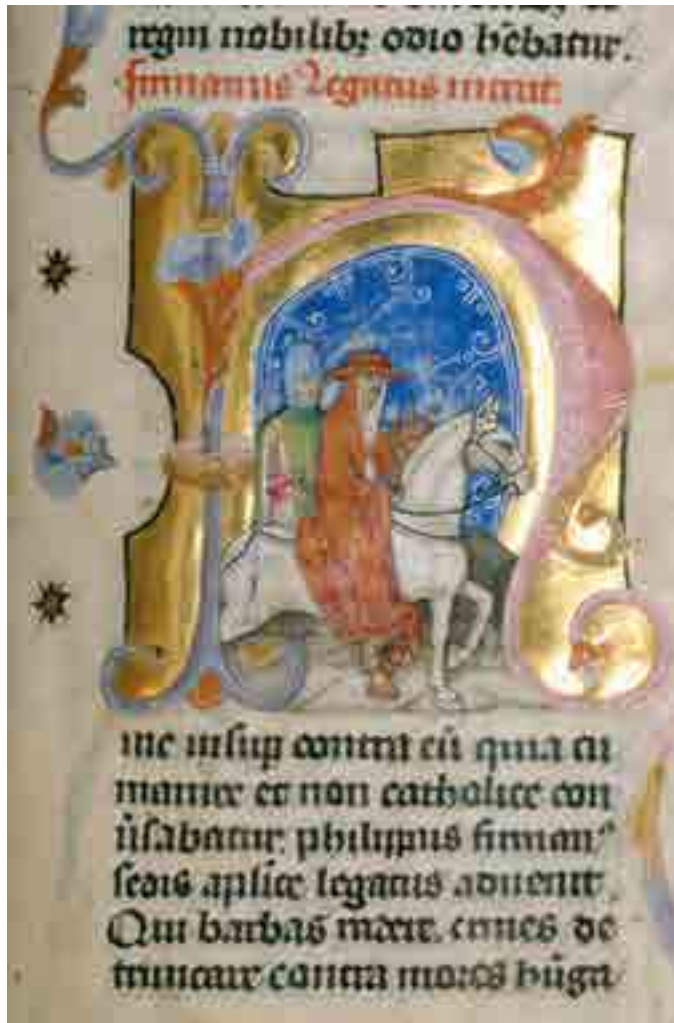 regni nobilib; odio hēbatur.
firmanus legatus
H
inc insup contra eū quia cu
manice et non catholice con
ūsabatur. philippus firman᾿
sedis aplice legatus aduenit.
Qui barbas radere, crines de
truncare contra mores hūga